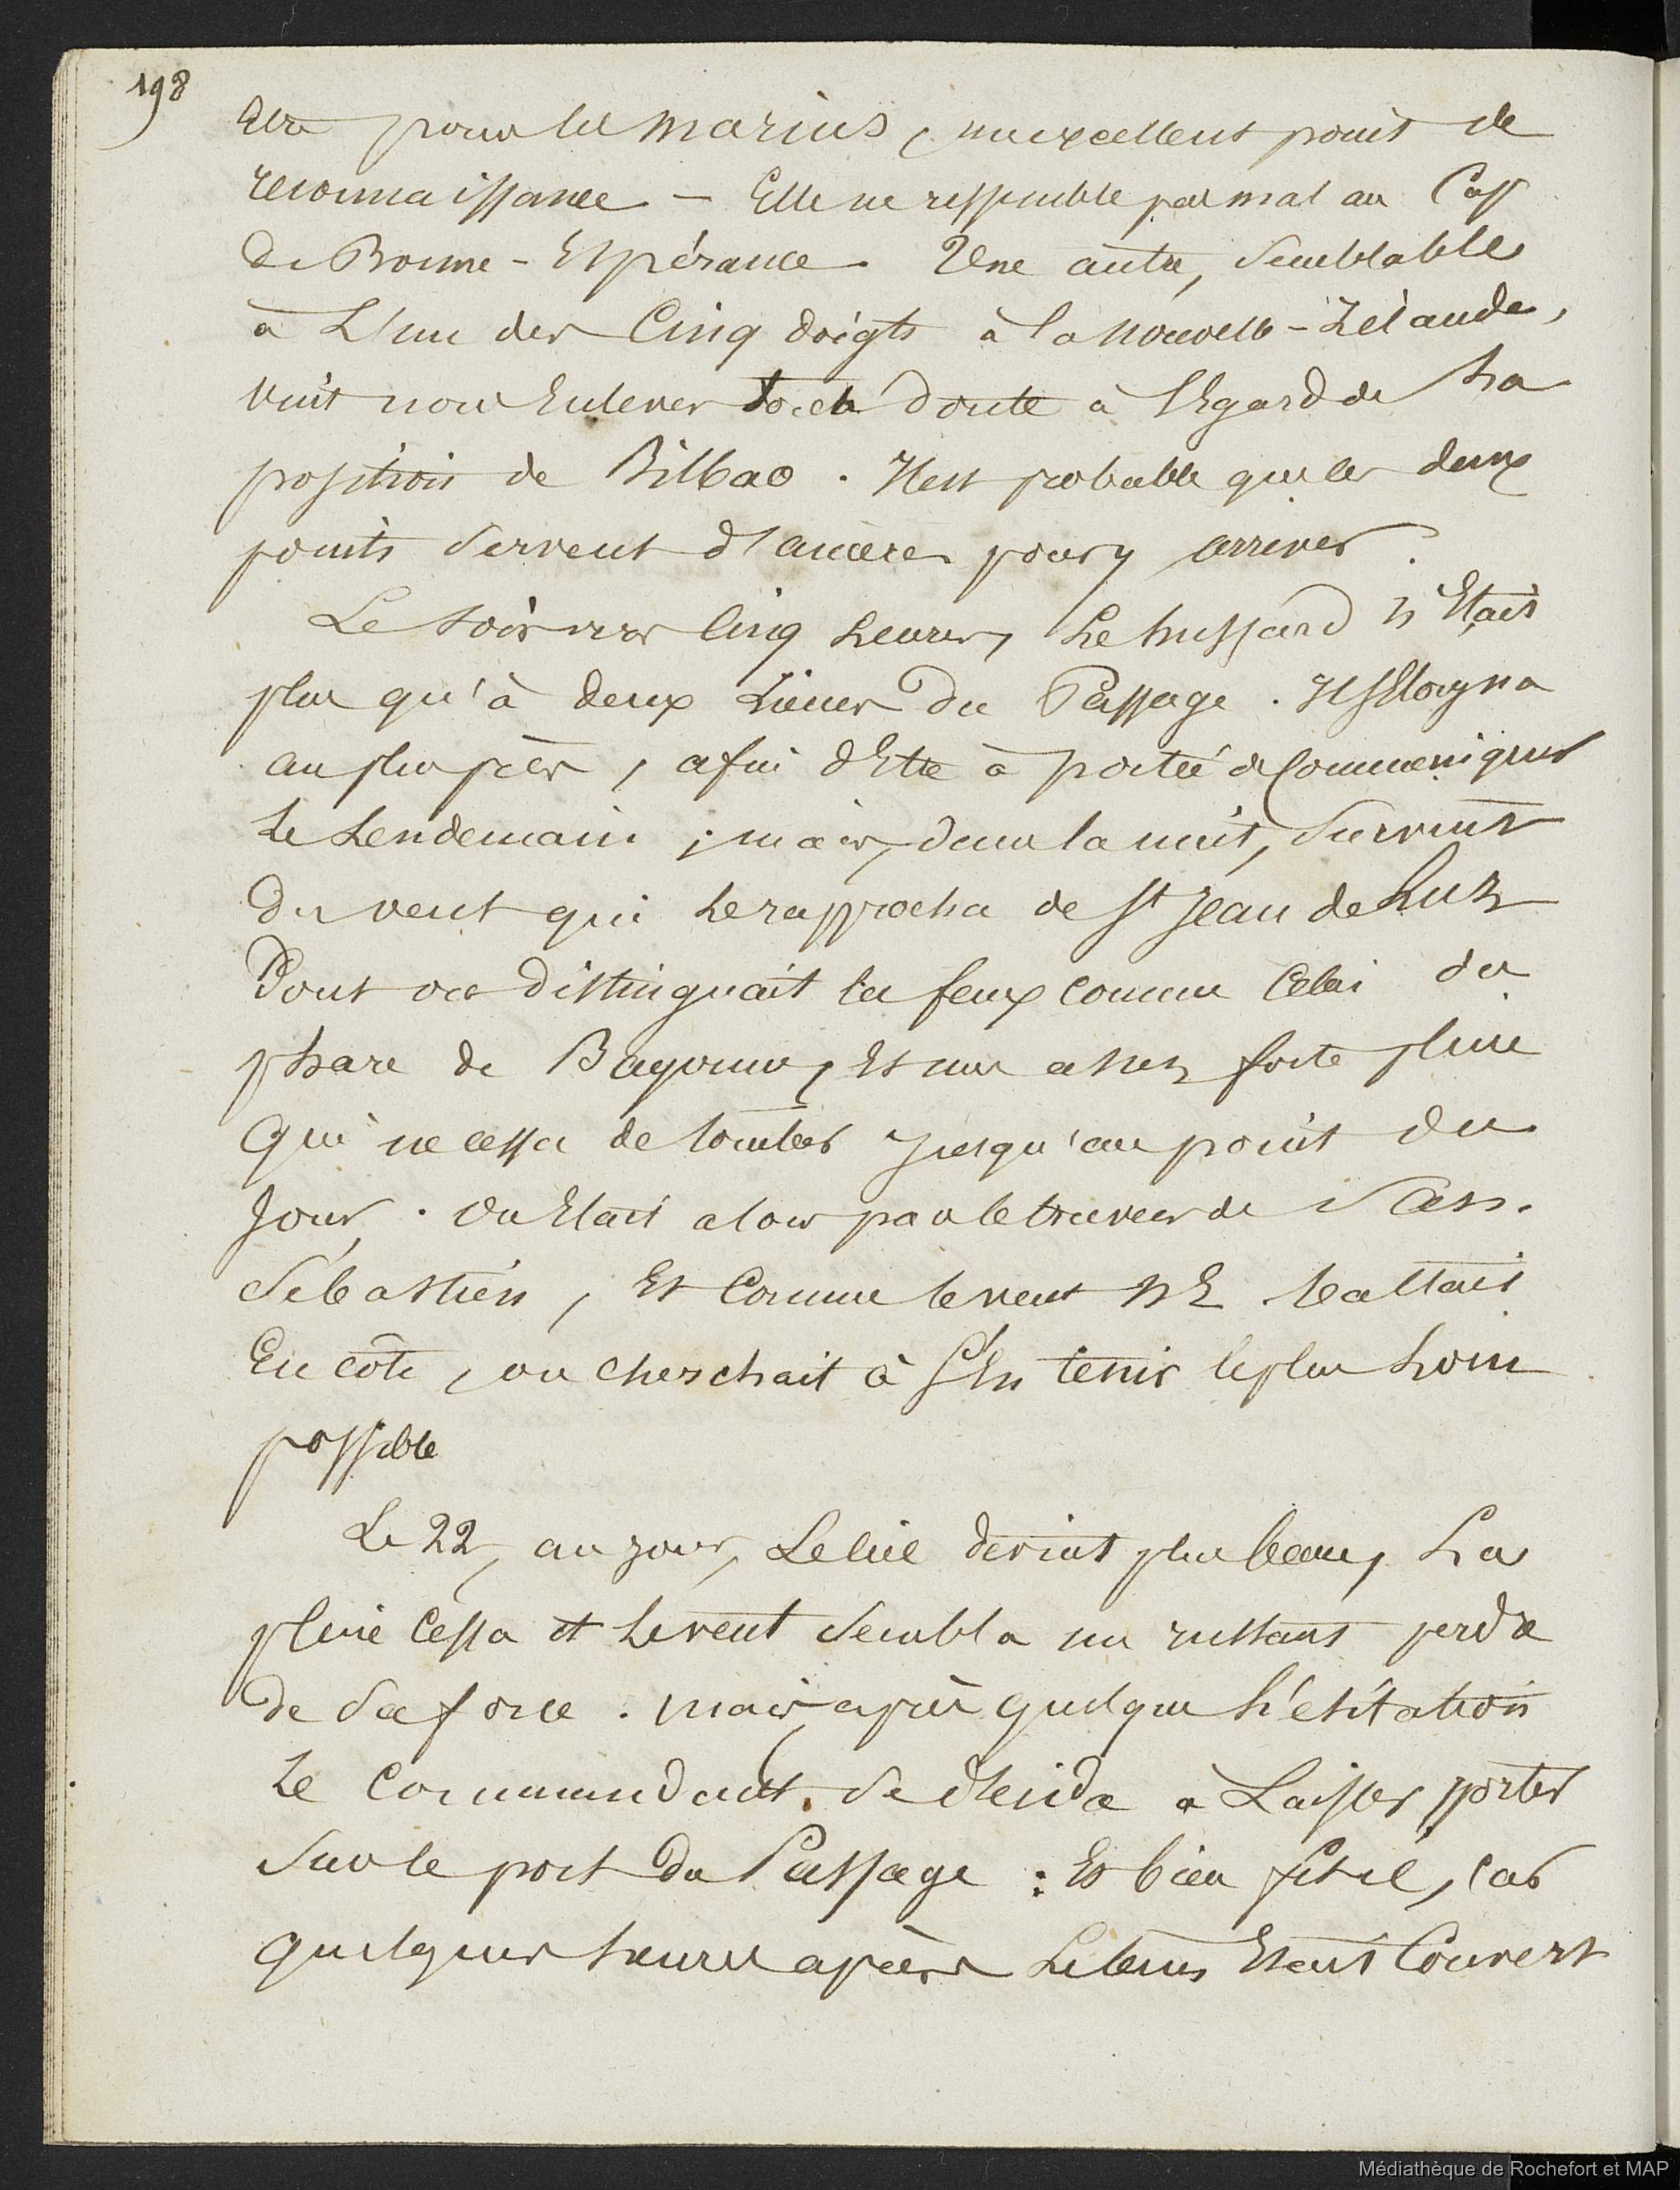 198
Etre pour les marins, un excellent point de
reconnaissance — Elle ne ressemble pas mal au Cap
de Bonne-Espérance. Une autre, semblable
à L'un des Cinq doigts à la nouvelle-Zélande,
vint nous Enlever toute doute à l'Egard de La
position de Bilbao. Il est probable que les deux
points servent d'amères pour y arriver.
Le soir vers Cinq heures, Le hussard n'Etait
plus qu'à deux Lieues du Passage. Il s'Eloigna
au plus près, afin d'Etre à portée de Communiquer
Le Lendemain ; mais, dans la nuit, survint
du vent qui Le rapprocha de St Jean de Luz
Dont on distinguait les feux comme Celui du
phare de Bayonne, Et une assez forte pluie
Qui ne cessa de tomber jusqu'au point du
Jour. On Etait alors par le travers de San-
Sébastien, Et Comme le vent N E battait
En côte, on cherchait à s'En tenir le plus Loin
possible
Le 22, au jour, Le Ciel devint plus beau, La
pluie Cessa et Le vent sembla un instant perdre
de sa force. mais, après quelque hésitation
Le Commandant se décida à Laisser porter
sur le port du Passage : Et bien fit-il, Car
quelques heures après Le tems Etant Couvert
Médiathèque de Rochefort et MAP